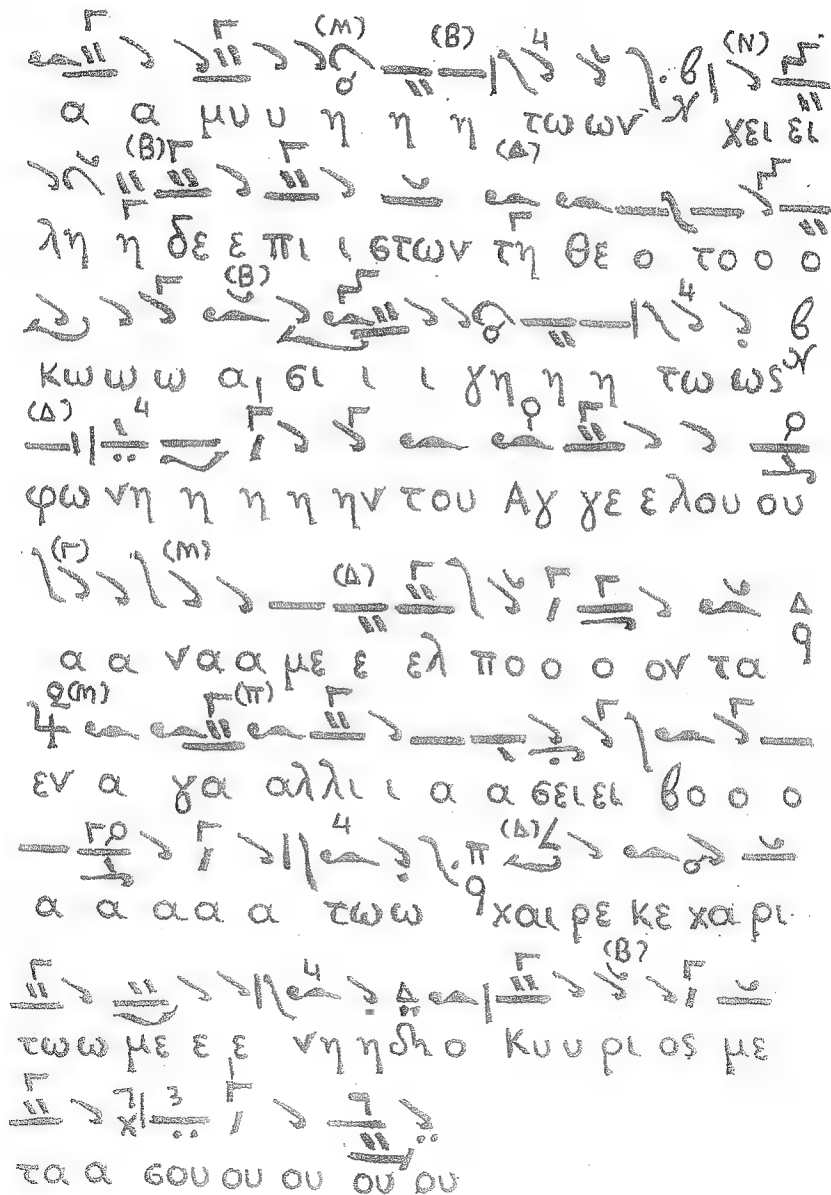 α α μυ υ η η η τω ων χει ει
λη η δε ε πι ι στων τη θε ο το ο ο
κω ω ω α, σι ι ι γη η η τω ως
φω νη η η η ην του Αγ γε ε λου ου
α α να α με ε ελ πο ο ο ον τα
εν α γα αλ λι ι α α σει ει βο ο ο
α α α α α τω ω χαι ρε κε χα ρι
τω ω με ε ε νη η δη ο Κυ υ ρι ος με
τα α σου ου ου ου ου